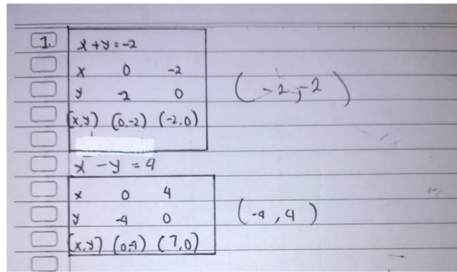 1. x + y = -2
x 0 -2
y -2 0
(x,y) (0,-2) (-2,0)
(-2,-2)
x - y = 4
x 0 4
y -4 0
(x,y) (0,-4) (7,0)
(-4, 4)